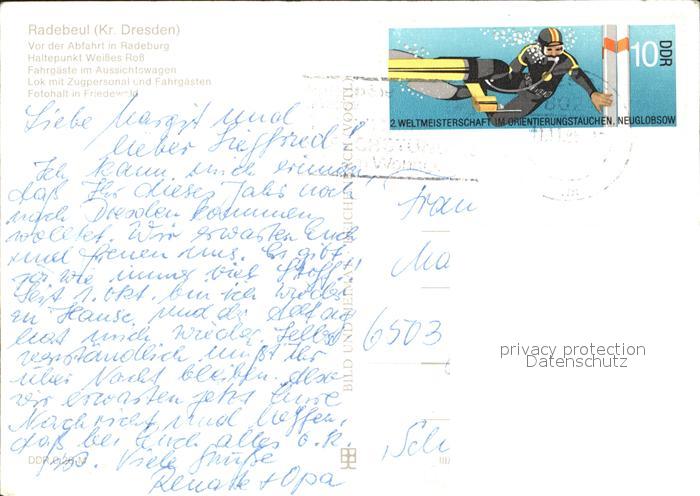 Radebeul (Kr. Dresden)
Vor der Abfahrt in Radeburg
Haltepunkt Weißes Roß
Fahrgäste im Aussichtswagen
Lok mit Zugpersonal und Fahrgästen
Fotohalt in Friedewald
Liebe Margit und
lieber Siegfried!
Ich kann mich erinnern
daß Ihr dieses Jahr noch
nach Dresden kommen
wolltet. Wir erwarten Euch
und freuen uns. Es gibt
ja wie immer viel Stoff!
Seit 1. Okt. bin ich wieder
zu Hause und der
hat mich wieder. Selbst
verständlich müßt Ihr
über Nacht bleiben. Also
wir erwarten jetzt Eure
Nachricht und hoffen,
daß bei Euch alles o.k.
ist. Viele Grüße
Renate + Opa
BILD UND HEIMAT REICHENBACH VOGTL
10
DDR
2. WELTMEISTERSCHAFT IM ORIENTIERUNGSTAUCHEN, NEUGLOBSOW
Frau
Ma
6503
Sch
privacy protection
Datenschutz